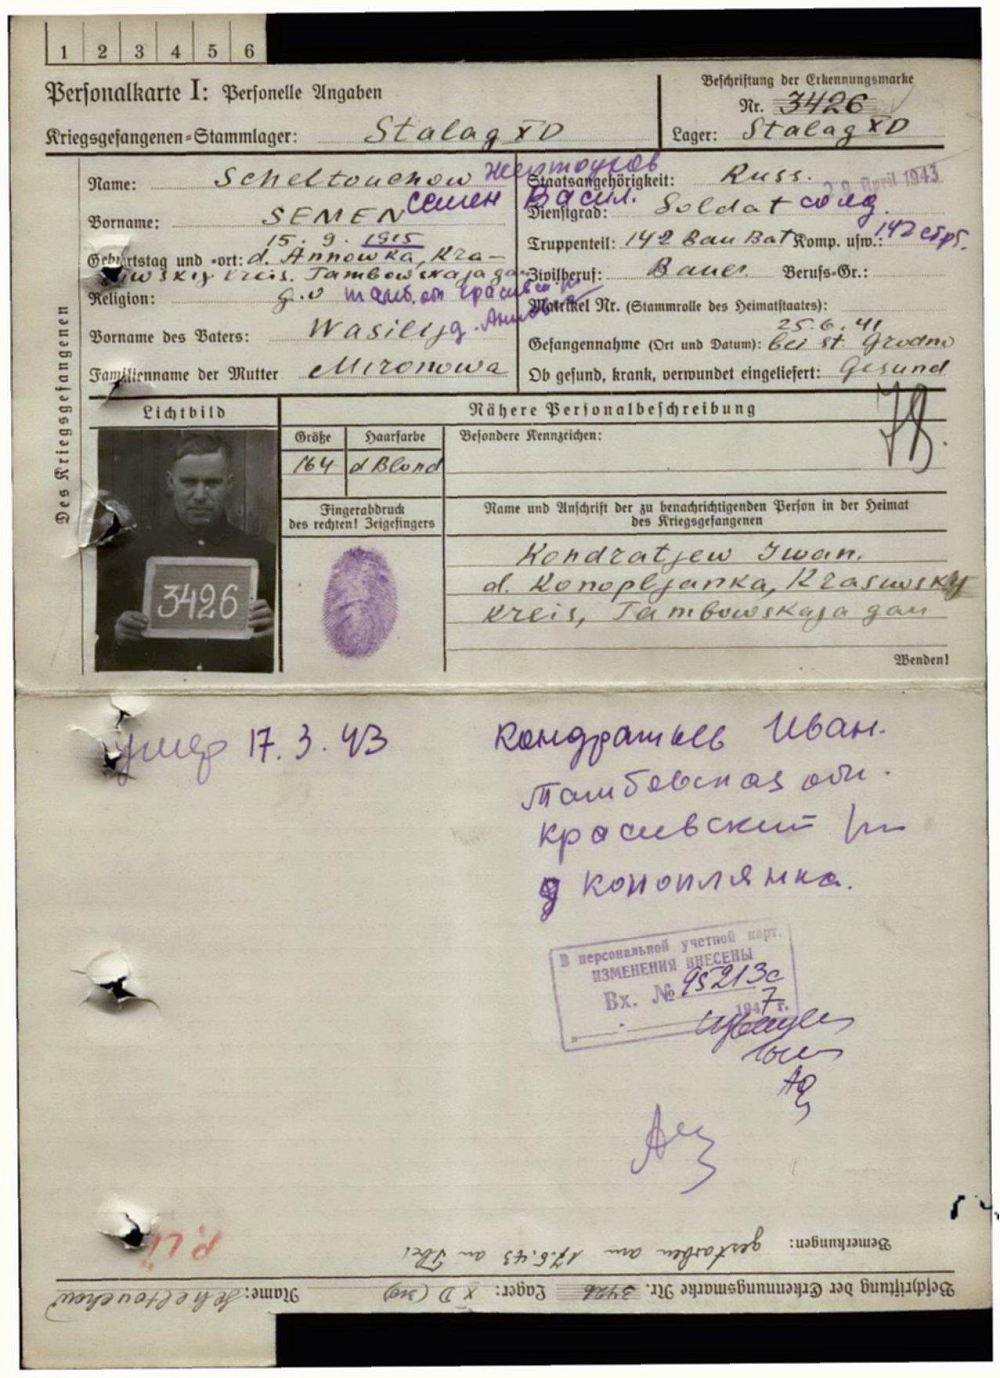 1 2 3 4 5 6
Personalkarte I: Personelle Angaben
Kriegsgefangenen=Stammlager: Stalag XD
Beschriftung der Erkennungsmarke
Nr. 3426
Lager: Stalag XD
Des Kriegsgefangenen
Name: Scheltouchow Желтоухов
Vorname: SEMEN Семен Васил.
Geburtstag und =ort: 15. 9. 1915 d. Annowka, Kra-
suwskij Kreis. Tambowskaja gau
Religion: g.o Тамб. обл Красивск
Vorname des Vaters: Wasilij д.
Familienname der Mutter Mironowa
Staatsangehörigkeit: Russ.
April 1943
Dienstgrad: Soldat солд.
Truppenteil: 142 Bau Bat Komp. usw.: 142 стр.
Zivilberuf: Bauer Berufs-Gr.:
Matrikel Nr. (Stammrolle des Heimatstaates):
25.6.41
Gefangennahme (Ort und Datum): bei st. Grodno
Ob gesund, krank, verwundet eingeliefert: Gesund
Lichtbild
Nähere Personalbeschreibung
Größe Haarfarbe Besondere Kennzeichen:
164 d Blond
Fingerabdruck
des rechten! Zeigefingers
Name und Anschrift der zu benachrichtigenden Person in der Heimat
des Kriegsgefangenen
3426
Kondratjew Iwan.
d. Konopljanka, Krasuwsky
Kreis, Tambowskaja gau
Wenden!
умер 17. 3. 43
Кондратьев Иван.
Тамбовская обл.
Красивский
д Коноплянка.
В персональной учетной карт.
ИЗМЕНЕНИЯ ВНЕСЕНЫ
Вх. № 95213с
1947 г.
Bemerkungen: gestorben am
Beschriftung der Erkennungsmarke Nr. 3426 Lager: X D (310) Name: Scheltouchow